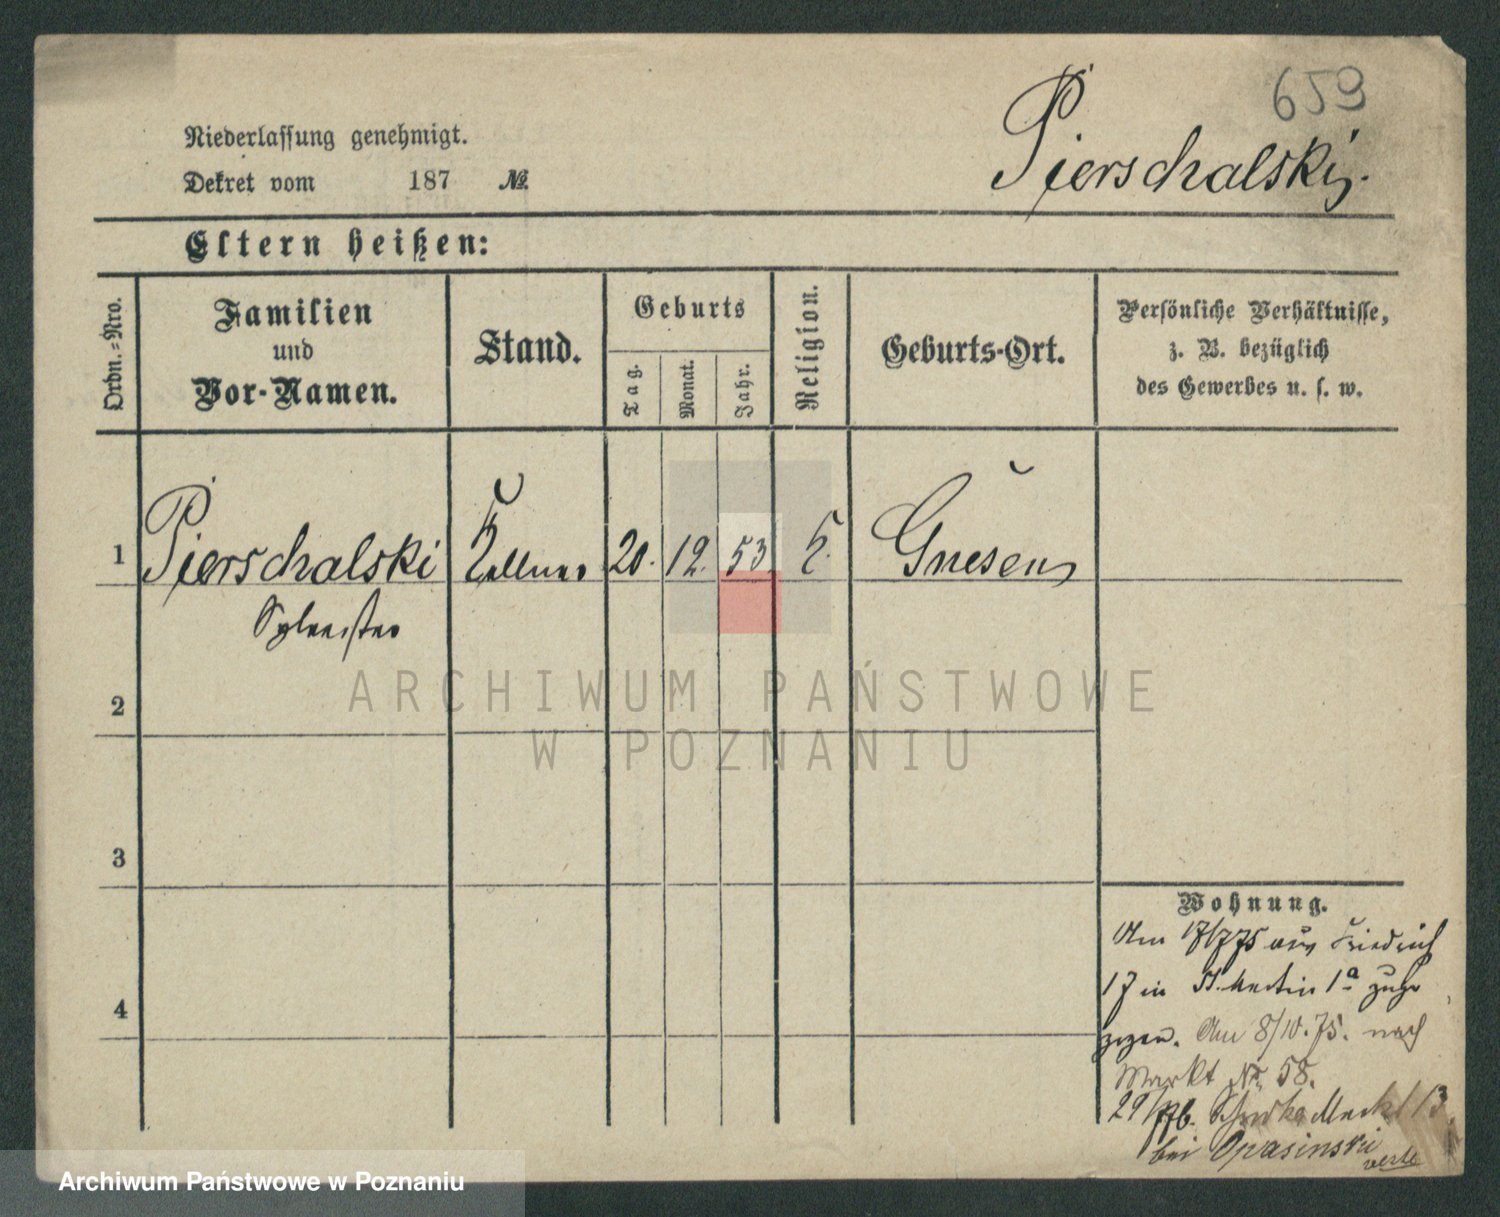 659
Pierschalski.
Niederlassung genehmigt.
Dekret vom 187 №
Eltern heißen:
Ordn.-Nro.
Familien
und
Vor-Namen.
Stand.
Geburts
Tag.
Monat.
Jahr.
Religion.
Geburts-Ort.
Persönliche Verhältnisse,
z. B. bezüglich
des Gewerbes u. s. w.
1 Pierschalski Kellner 20. 12. 53 K. Gnesen
Sylvester
2
3
4
Wohnung.
Am 17/7 75 aus Friedrich
17 in St. Martin 1a zuge
zogen. Am 8/10. 75. nach
Markt No. 58.
bei Opasinski
verte
ARCHIWUM PAŃSTWOWE
W POZNANIU
Archiwum Państwowe w Poznaniu